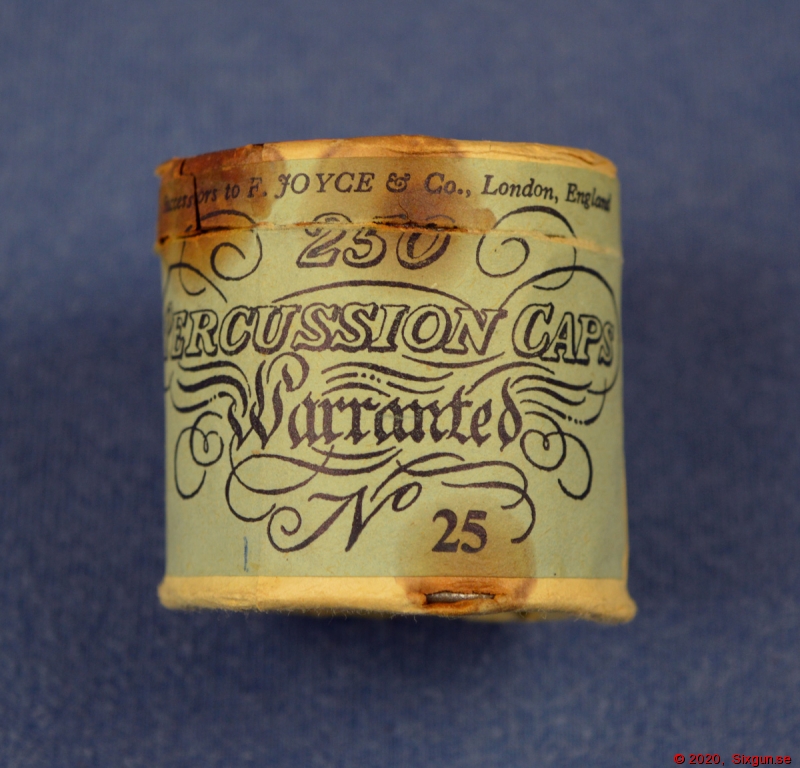 Successors to F. JOYCE & Co., London, England
250
PERCUSSION CAPS
Warranted
No 25
© 2020, Sixgun.se